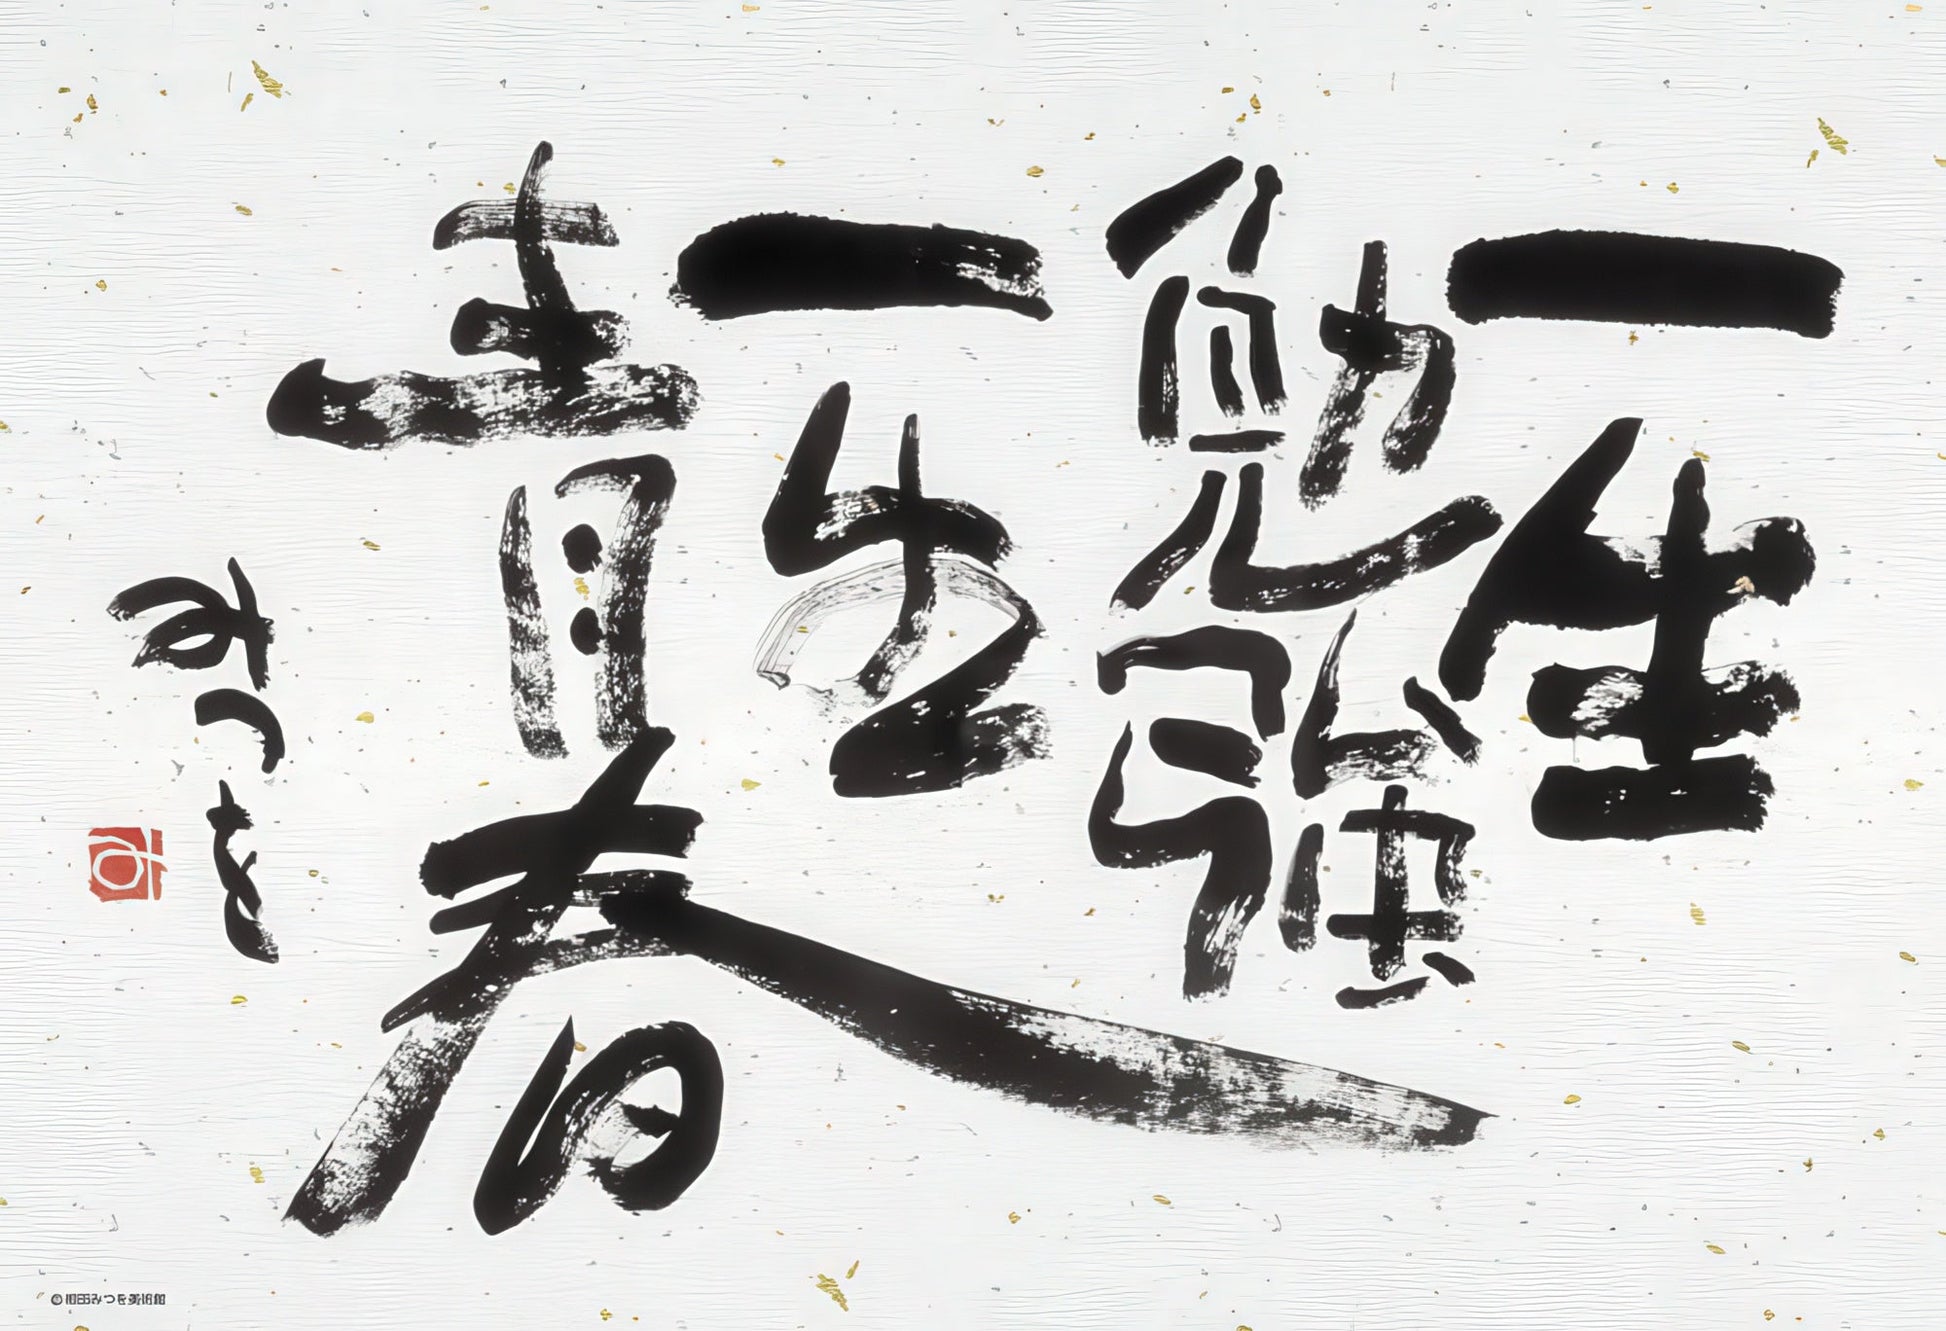 一生
勉強
一生
青春
みつを
み
©相田みつを美術館